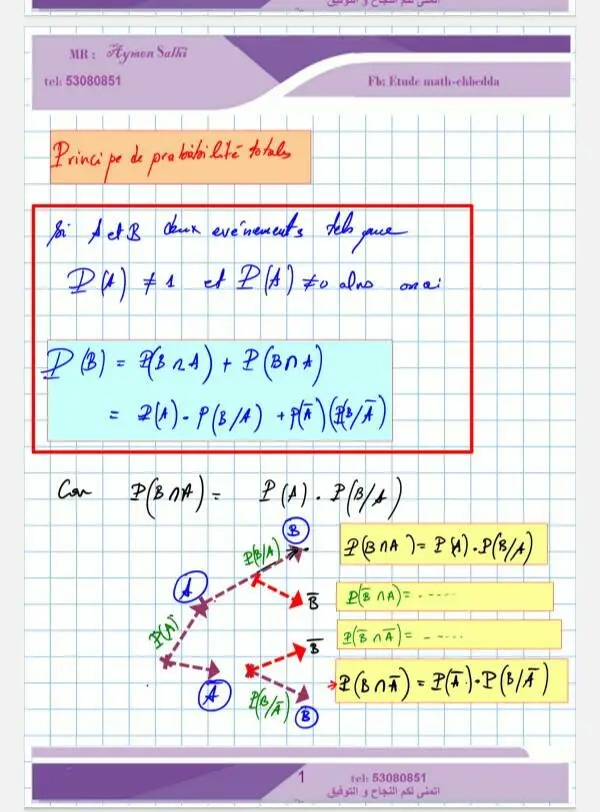 اتمنى لكم النجاح و التوفيق
MR : Aymen Salhi
tel: 53080851
Fb: Etude math-chbedda
Principe de probabilité totals
Si A et B deux evénements tels que
P(A) ≠ 1 et P(A) ≠ 0 alors on ai
P(B) = P(B∩A) + P(B∩A)
= P(A) · P(B/A) + P(Ā)(P(B/Ā)
Car P(B∩A) = P(A) · P(B/A)
B
P(B/A)
P(B∩A) = P(A) · P(B/A)
A
B̄
P(B̄∩A) = - - - - -
P(A)
B̄
P(B̄∩Ā) = - - - - -
Ā
P(B/Ā)
B
P(B∩Ā) = P(Ā) · P(B/Ā)
1
tel: 53080851
اتمنى لكم النجاح و التوفيق